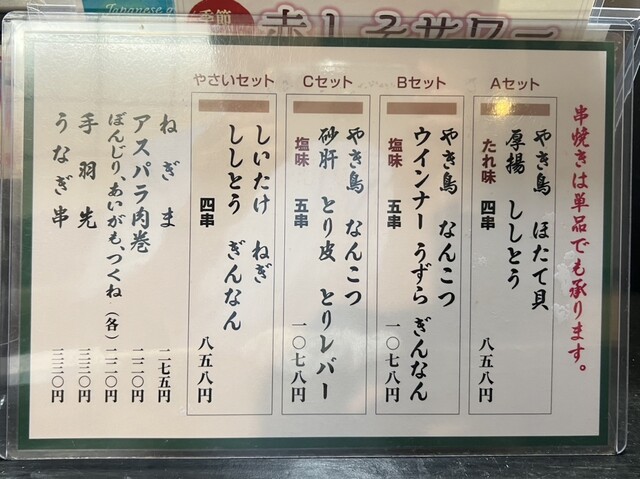 Japanese
季節
赤しそサワー
串焼きは単品でも承ります。
Aセット
やき鳥 ほたて貝
厚揚 ししとう
たれ味 四串 八五八円
Bセット
やき鳥 なんこつ
ウインナー うずら ぎんなん
塩味 五串 一〇七八円
Cセット
やき鳥 なんこつ
砂肝 とり皮 とりレバー
塩味 五串 一〇七八円
やさいセット
しいたけ ねぎ
ししとう ぎんなん
四串 八五八円
ねぎま 二七五円
アスパラ肉巻 二二〇円
ぼんじり、あいがも、つくね(各) 二二〇円
手羽先 三三〇円
うなぎ串 三三〇円